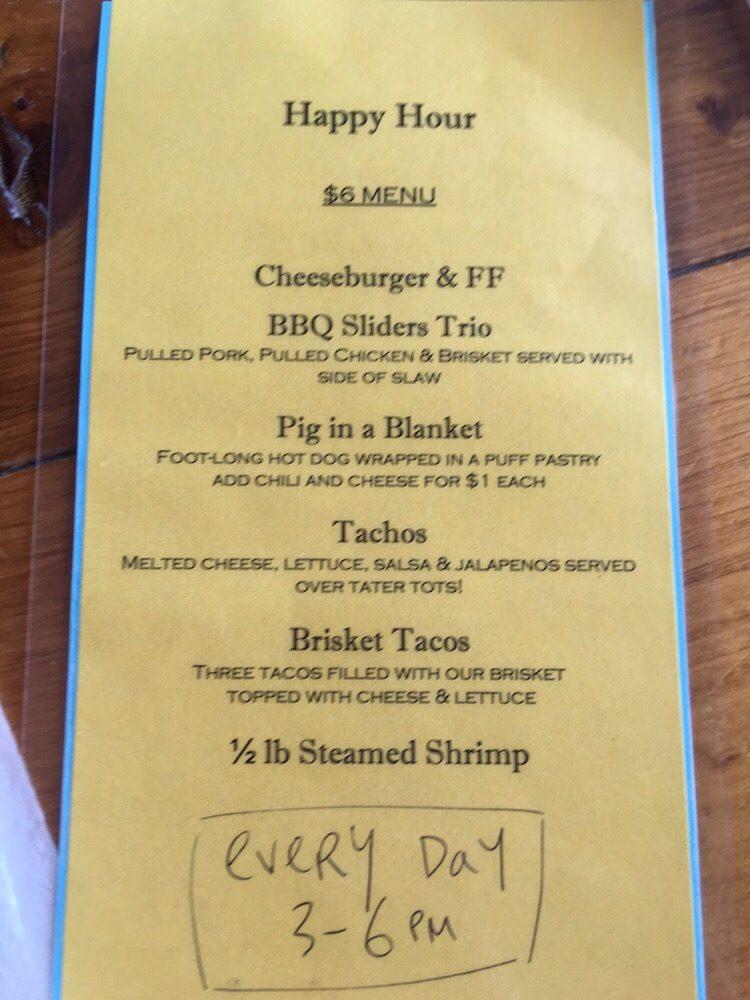 Happy Hour
$6 MENU
Cheeseburger & FF
BBQ Sliders Trio
PULLED PORK, PULLED CHICKEN & BRISKET SERVED WITH
SIDE OF SLAW
Pig in a Blanket
FOOT-LONG HOT DOG WRAPPED IN A PUFF PASTRY
ADD CHILI AND CHEESE FOR $1 EACH
Tachos
MELTED CHEESE, LETTUCE, SALSA & JALAPENOS SERVED
OVER TATER TOTS!
Brisket Tacos
THREE TACOS FILLED WITH OUR BRISKET
TOPPED WITH CHEESE & LETTUCE
½ lb Steamed Shrimp
EVERY DAY
3-6 PM